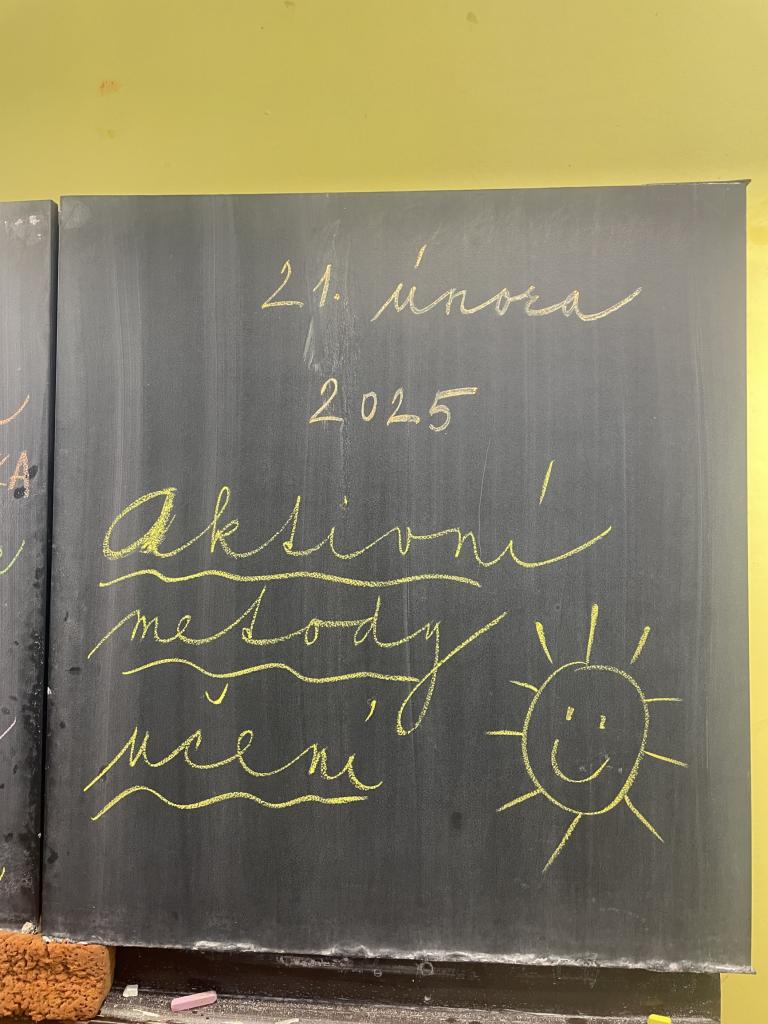 21. února
2025
Aktivní
metody
učení
KA